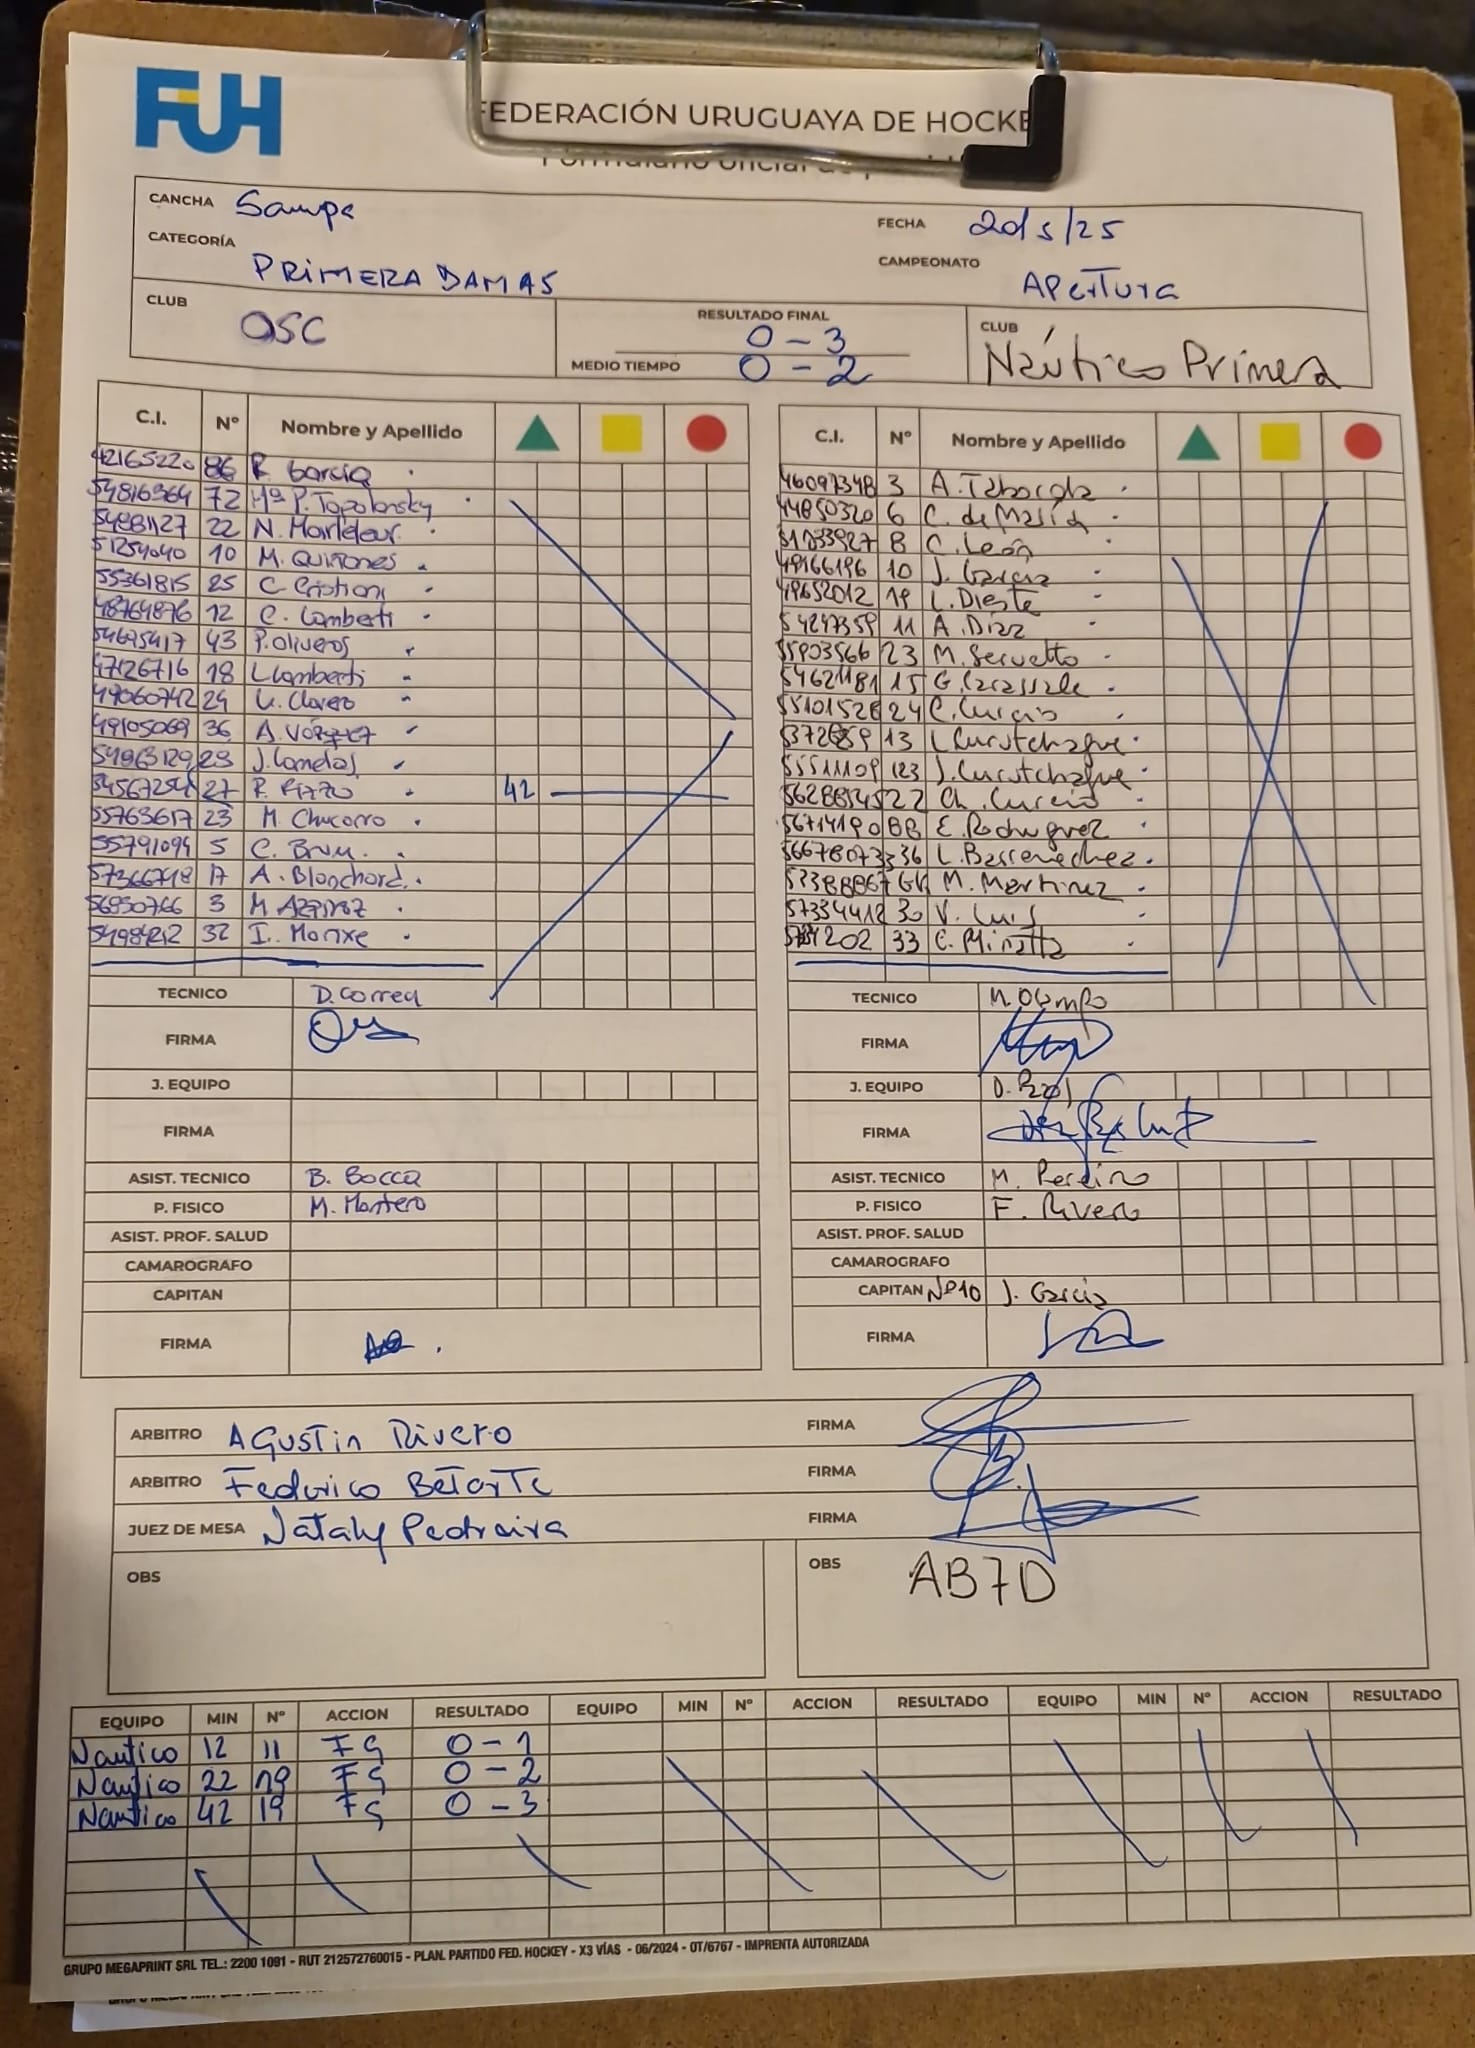 FUH
FEDERACIÓN URUGUAYA DE HOCKE
CANCHA Sampa FECHA 20/5/25
CATEGORÍA PRIMERA DAMAS CAMPEONATO APERTURA
CLUB OSC RESULTADO FINAL 0-3 CLUB Náutico Primera
MEDIO TIEMPO 0-2
C.I. Nº Nombre y Apellido C.I. Nº Nombre y Apellido
42165220 86 R. García
54816364 72 Mª P. Topolansky
22 N.
51254040 10 M. Quiñones
55361815 25 C. Cristiani
48764876 12 C. Lamberti
43 P. Oliveros
47126716 18 L Lamberti
49060742 24 Clavero
49105069 36 A. Vázquez
J.
27 R. Rizzo 42
55763617 23 M. Chucarro
55791094 5 C. Brum.
57366718 17 A. Blanchard.
56930766 3 M
32 I.
46097348 3 A. Taborda
44850320 6 C. de María
8 C. León
49166196 10 J. García
49652012 19 L. Dieste
54247359 11 A. Díaz
55903566 23 M. Servetto
54621181 15 G.
55101528 24 C. Curcio
13 L Curutchague
55511109 123 J. Curutchague
22 Ch. Curcio
56714190 88 E. Rodriguez
36 L. Barrenechea.
GK M. Martinez
57334412 30 V. Luis
33 C. Minetta
TECNICO D. Correa TECNICO N. Ocampo
FIRMA FIRMA
J. EQUIPO J. EQUIPO D.
FIRMA FIRMA
ASIST. TECNICO B. Bocca ASIST. TECNICO M. Pereira
P. FISICO M. Montero P. FISICO F. Rivero
ASIST. PROF. SALUD ASIST. PROF. SALUD
CAMAROGRAFO CAMAROGRAFO
CAPITAN CAPITAN Nº10 J. García
FIRMA FIRMA
ARBITRO Agustin Rivero FIRMA
ARBITRO Federico Betarte FIRMA
JUEZ DE MESA Nataly Pedreira FIRMA
OBS OBS AB7D
EQUIPO MIN Nº ACCION RESULTADO EQUIPO MIN Nº ACCION RESULTADO EQUIPO MIN Nº ACCION RESULTADO
Nautico 12 11 FG 0-1
Nautico 22 19 FG 0-2
Nautico 42 19 FG 0-3
GRUPO MEGAPRINT SRL TEL.: 2200 1091 - RUT 212572760015 - PLAN. PARTIDO FED. HOCKEY - X3 VÍAS - 06/2024 - OT/6767 - IMPRENTA AUTORIZADA